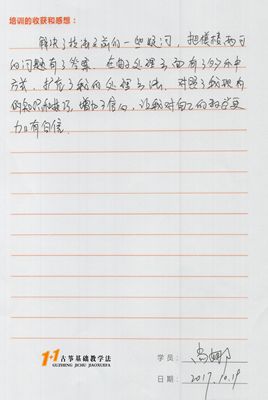 培训的收获和感想：
解决了技法之前的一些疑问，把模棱两可
的问题有了答案，在的处理方面有了多种
方式，扩充了我的处理方法，对照了我现有
的知识和技巧，增加了信心，让我对自己的教学
力有自信。
1+1 古筝基础教学法
GUZHENG JICHU JIAOXUEFA
学员：
日期：2017.10.19